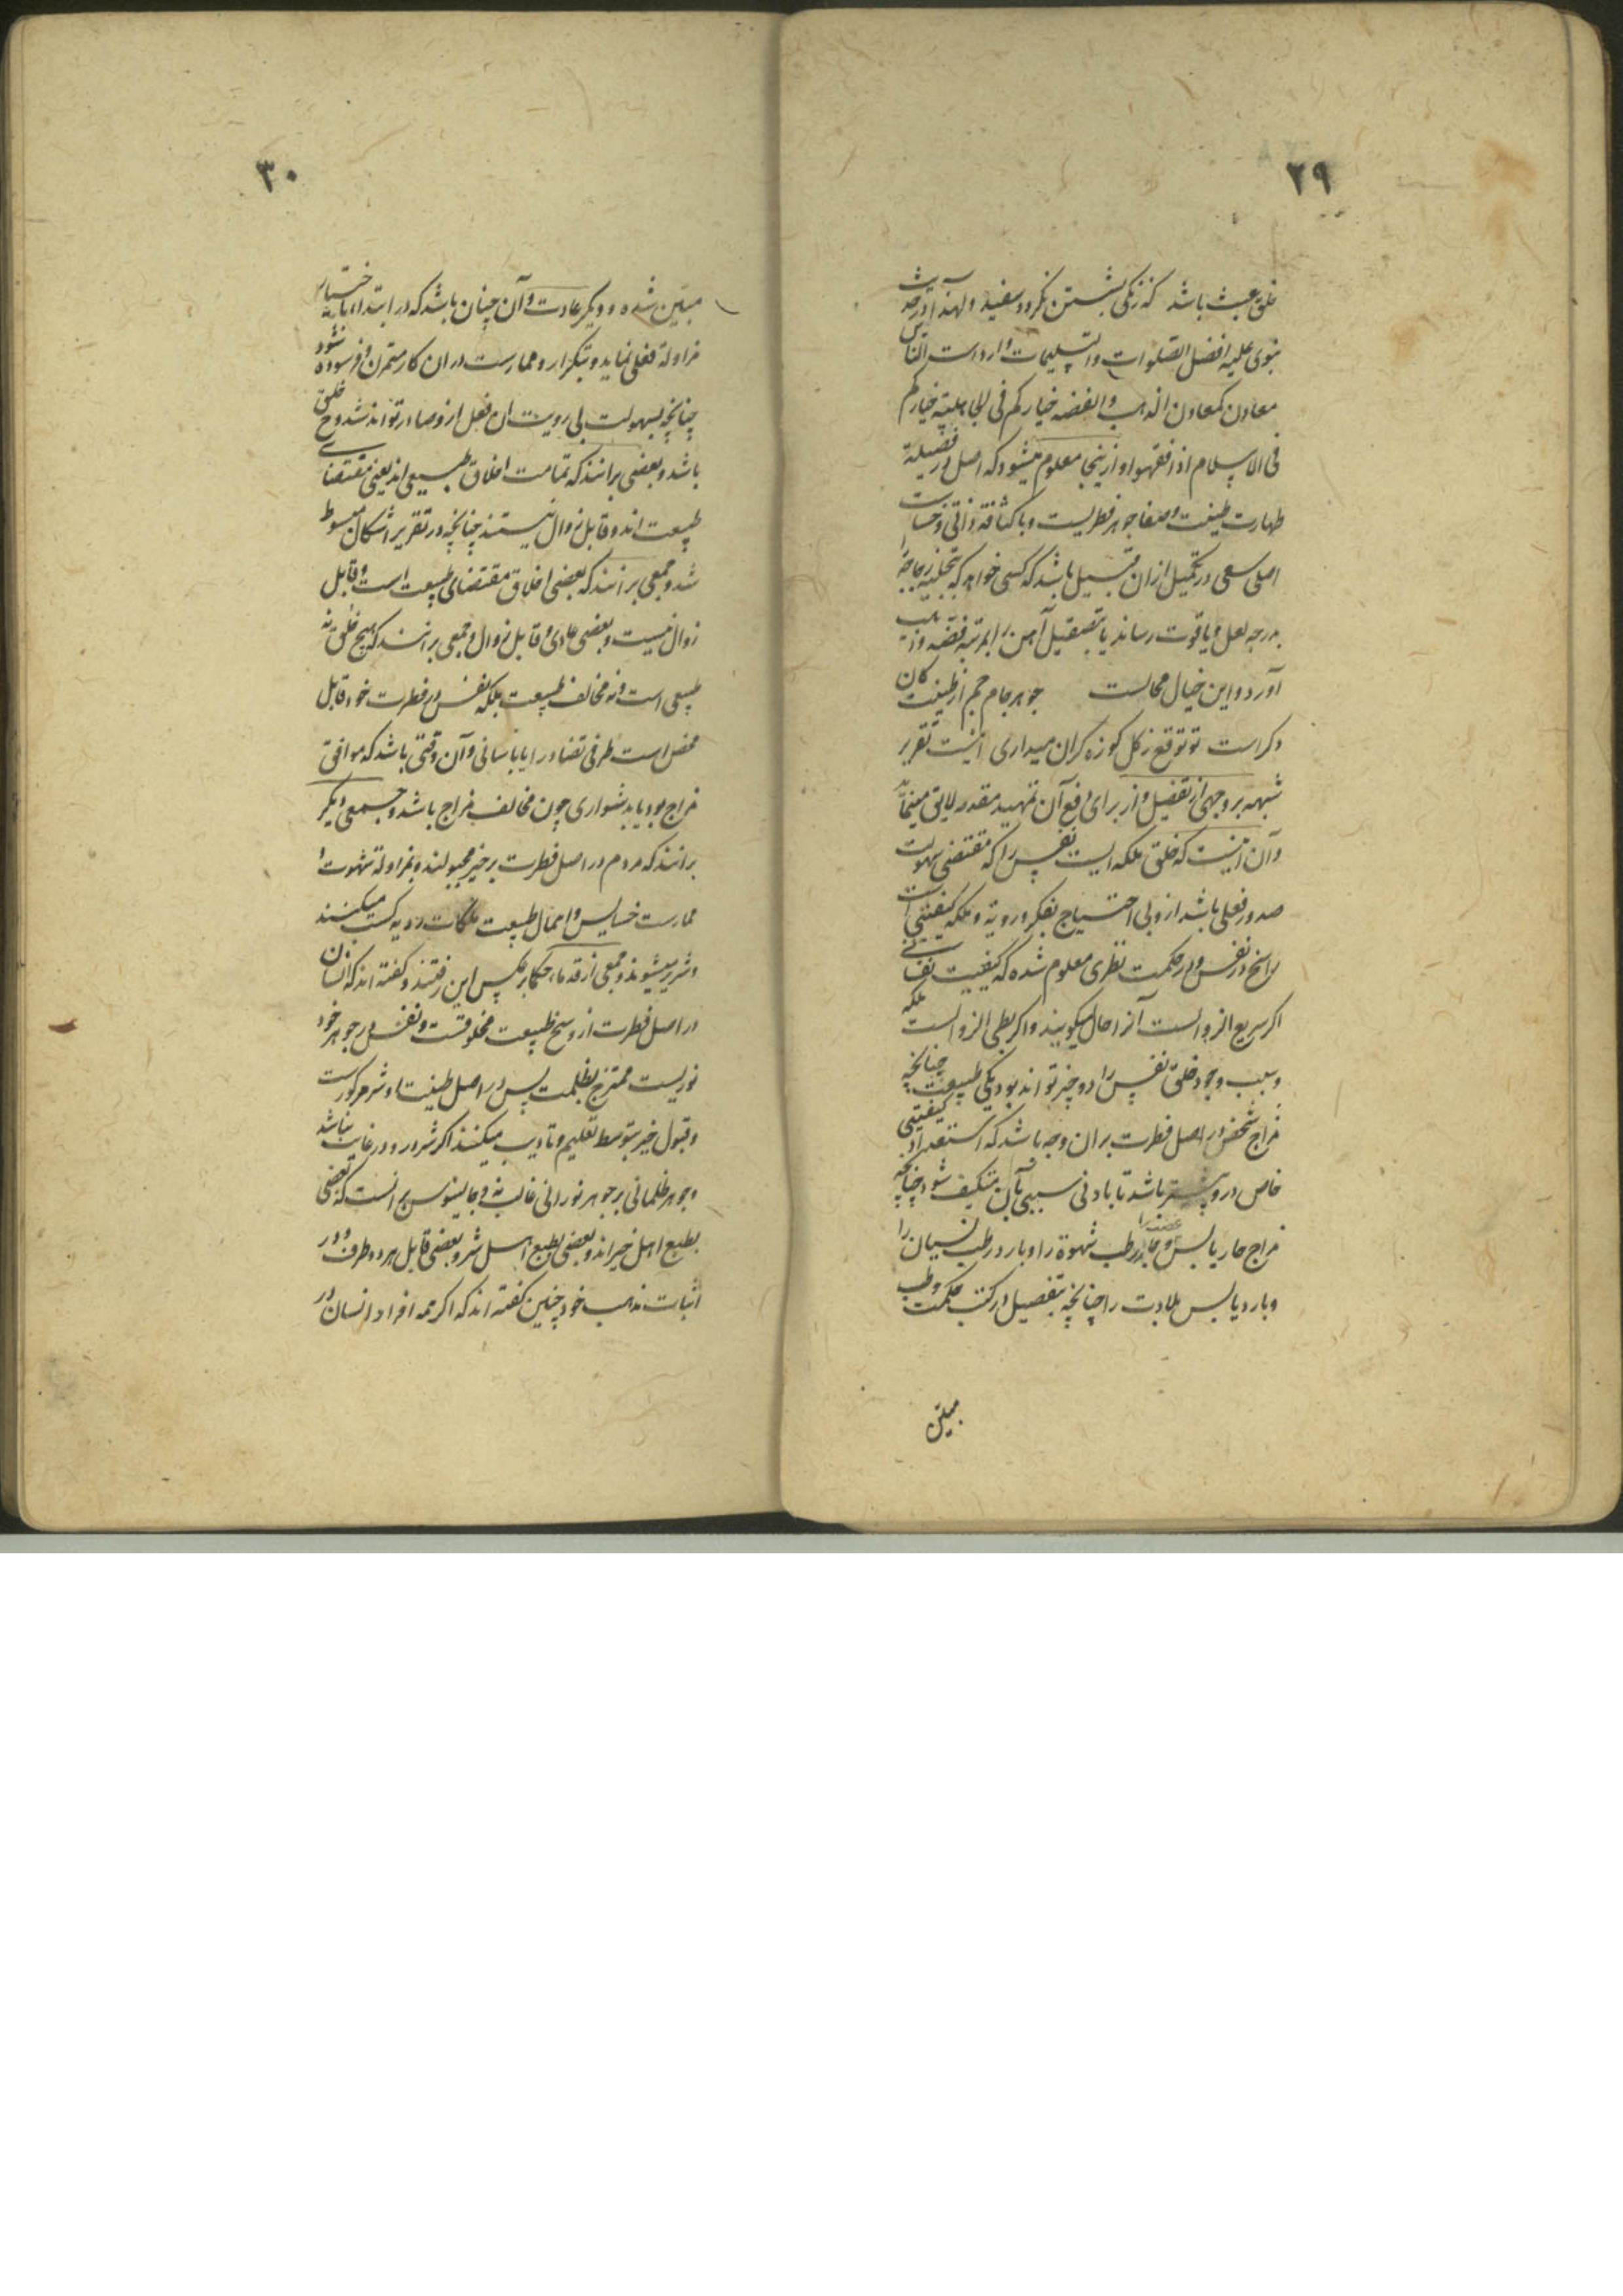 ۲۹
خلق عبث باشد که زنگی بشستن نگردد سفید ولهذا در حدیث
نبوی علیه افضل الصلوات والتسلیمات وارد است الناس
معادن کمعادن الذهب والفضه خیارکم فی الجاهلیته خیارکم
فی الاسلام اذا فقهوا و ازینجا معلوم میشود که اصل در فضیلة
طهارت طینت و صفا جوهر فطریست و با کثافة ذاتی و خساست
اصلی سعی در تکمیل ازان قبیل باشد که کسی خواهد که بتجلیه زجاجه
بدرجه لعل و یاقوت رساند یا بتصقیل آهن را بمرتبه فضه و ذهب
آورد و این خیال محالست جوهر جام جم از طینت کان
دکراست تو توقع ز کل کوزه کران میداری اینست تقریر
شبهه بر وجهی از تفصیل و از برای دفع آن تمهید مقدمه لایق مینماید
و آن اینست که خلق ملکه ایست نفس را که مقتضی سهولت
صدور فعلی باشد ازو بی احتیاج بفکر و رویة و ملکه کیفیتی است
راسخ در نفس و در حکمت نظری معلوم شده که کیفیت نفسانی
اکر سریع الزوالست آنرا حال میکویند و اکر بطی الزوالست ملکه
و سبب وجود خلق نفس را دو چیز تواند بود یکی طبیعت چنانچه
مزاج شخص در اصل فطرت بران وجه باشد که استعداد کیفیتی
خاص درو بیشتر باشد تا بادنی سببی بآن متکیف شود چنانچه
مزاج حار یابس غضب را و حار رطب شهوة را و بارد رطب نسیان را
و بارد یابس بلادت را چنانچه بتفصیل در کتب حکمت و طب
مبین
۳۰
مبین شده و دیکر عادت و آن چنان باشد که در ابتدا باختیار
مزاولة فعلی نماید و بتکرار و ممارست دران کار متمرن و فرسوده شود
چنانچه بسهولت بی رویت ان فعل ازو صادر تواند شد و خلق
باشد و بعضی برانند که تمامت اخلاق طبیعی اند یعنی مقتضای
طبیعت اند و قابل زوال نیستند چنانچه در تقریر اشکال مبسوط
شد و جمعی برانند که بعضی اخلاق مقتضای طبیعت است و قابل
زوال نیست و بعضی عادی و قابل زوال و جمعی برانند که هیچ خلق نه
طبیعی است و نه مخالف طبیعت بلکه نفس در فطرت خود قابل
محض است طرفی تضاد را یا باسانی و آن وقتی باشد که موافق
مزاج بود یا بدشواری چون مخالف مزاج باشد و جمعی دیکر
برانند که مردم در اصل فطرت بر خیر مجبولند و بمزاولة شهوت و
ممارست خسایس و اهمال طبیعت ملکات ردیه کسب میکنند
و شریر میشوند و جمعی از قدماء حکما بر عکس این رفتند و کفته اند که انسان
در اصل فطرت از وسخ طبیعت مخلوقست و نفس در جوهر خود
نوریست ممتزج بظلمت پس در اصل طینت او شر مرکوزست
و قبول خیر بتوسط تعلیم و تادیب میکنند اکر شرور در غایت نباشد
و جوهر ظلمانی بر جوهر نورانی غالب نه و جالینوس برانست که بعضی
بطبع اهل خیر اند و بعضی بطبع اهل شر و بعضی قابل هر دو طرف و در
اثبات مذهب خود چنین کفته اند که اکر همه افراد انسان در